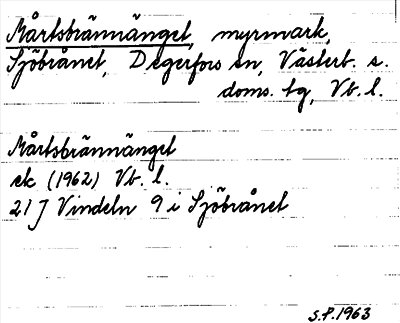 Mårtsbrännänget, myrmark,
Sjöbrånet, Degerfors sn, Västerb. s.
doms. tg, Vb. l.
Mårtsbrännänget
ek (1962) Vb. l.
21 J Vindeln 9 i Sjöbrånet
S.P. 1963